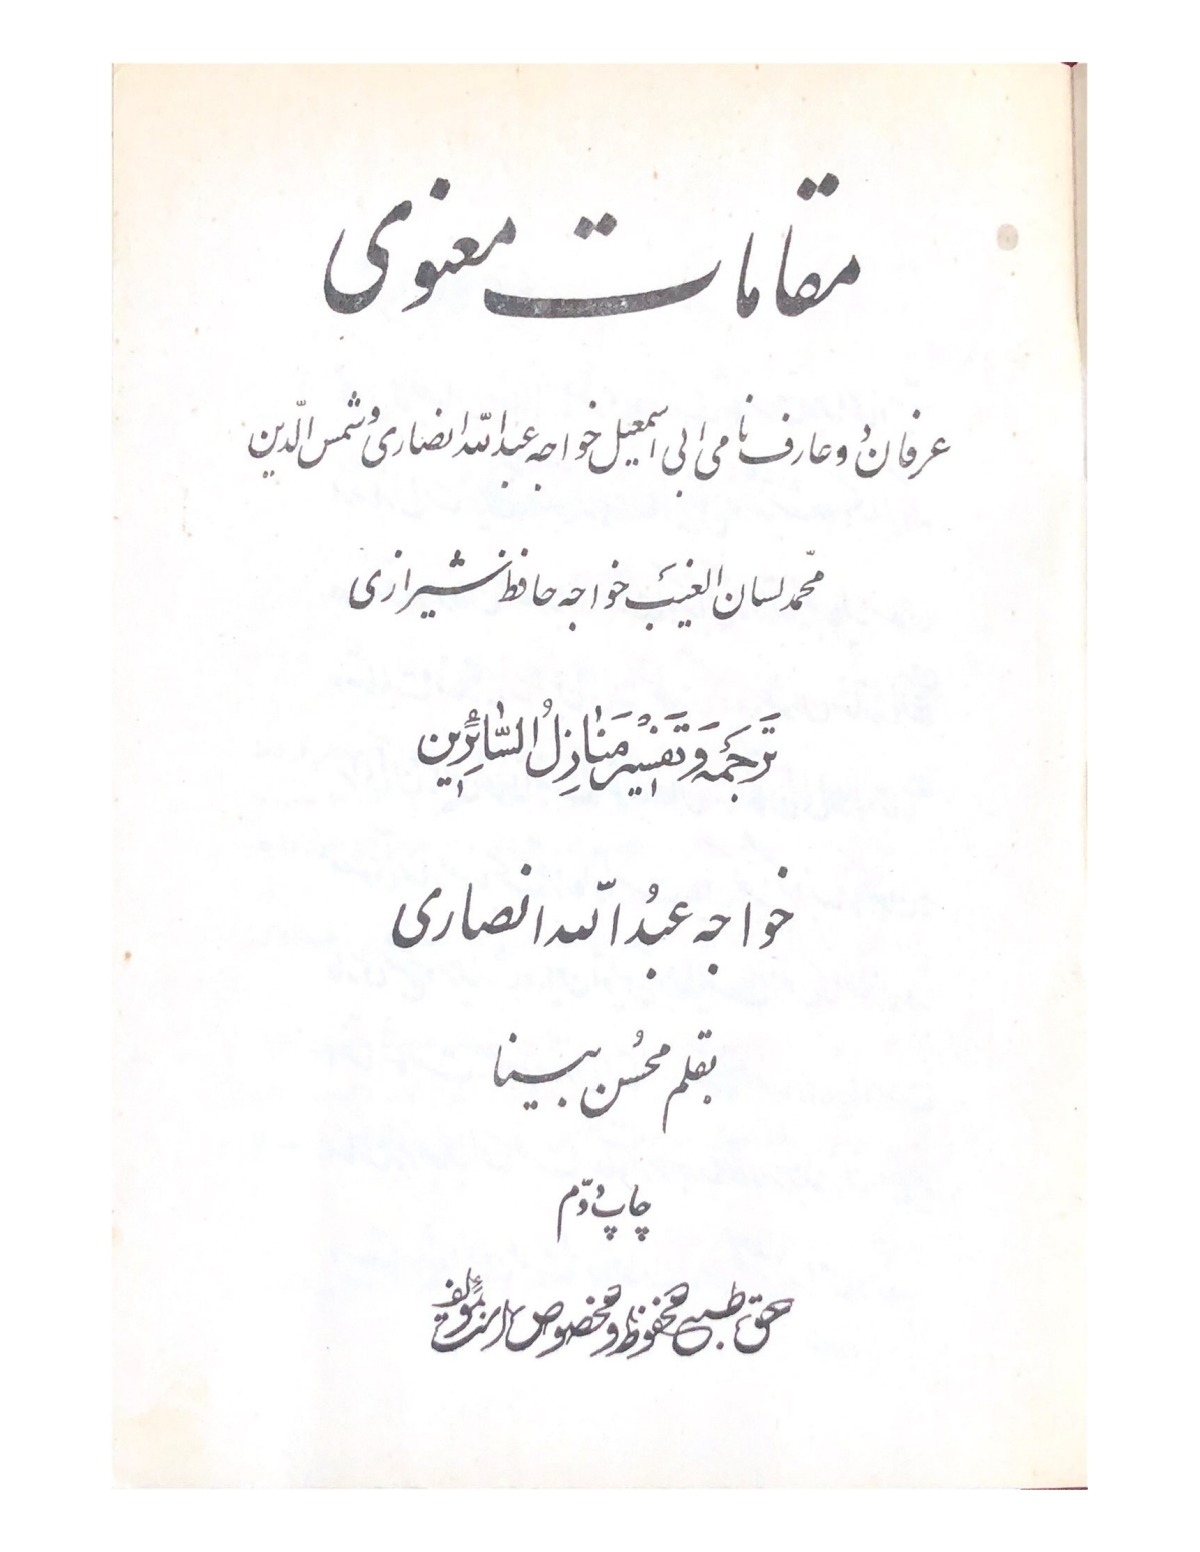 مقامات معنوی
عرفان دو عارف نامی ابی اسمعیل خواجه عبدالله انصاری و شمس الدّین
محمّد لسان الغیب خواجه حافظ شیرازی
تَرجَمَه وَ تَفسیر مَنازِلُ السّائِرین
خواجه عبدُالله انصاری
بقلم محسن بینا
چاپ دوّم
حق طبع محفوظ و مخصوص است بمؤلف